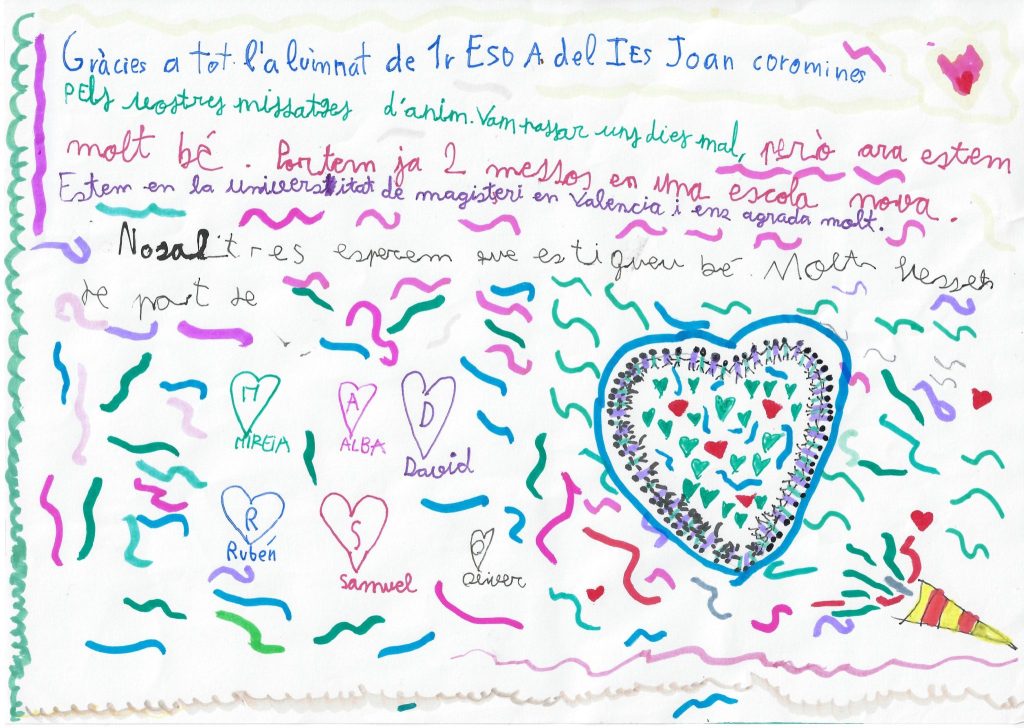 Gràcies a tot l'alumnat de 1r ESO A del IES Joan coromines
pels vostres missatges d'anim. Vam passar uns dies mal,
però ara estem
molt bé. Portem ja 2 messos en una escola nova.
Estem en la universitat de magisteri en Valencia i ens agrada molt.
Nosaltres esperem que estigueu bé. Molts bessets
de part de
M A D
MIREIA ALBA David
R S O
Rubén Samuel Oliver